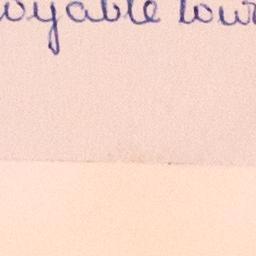 oyable tour